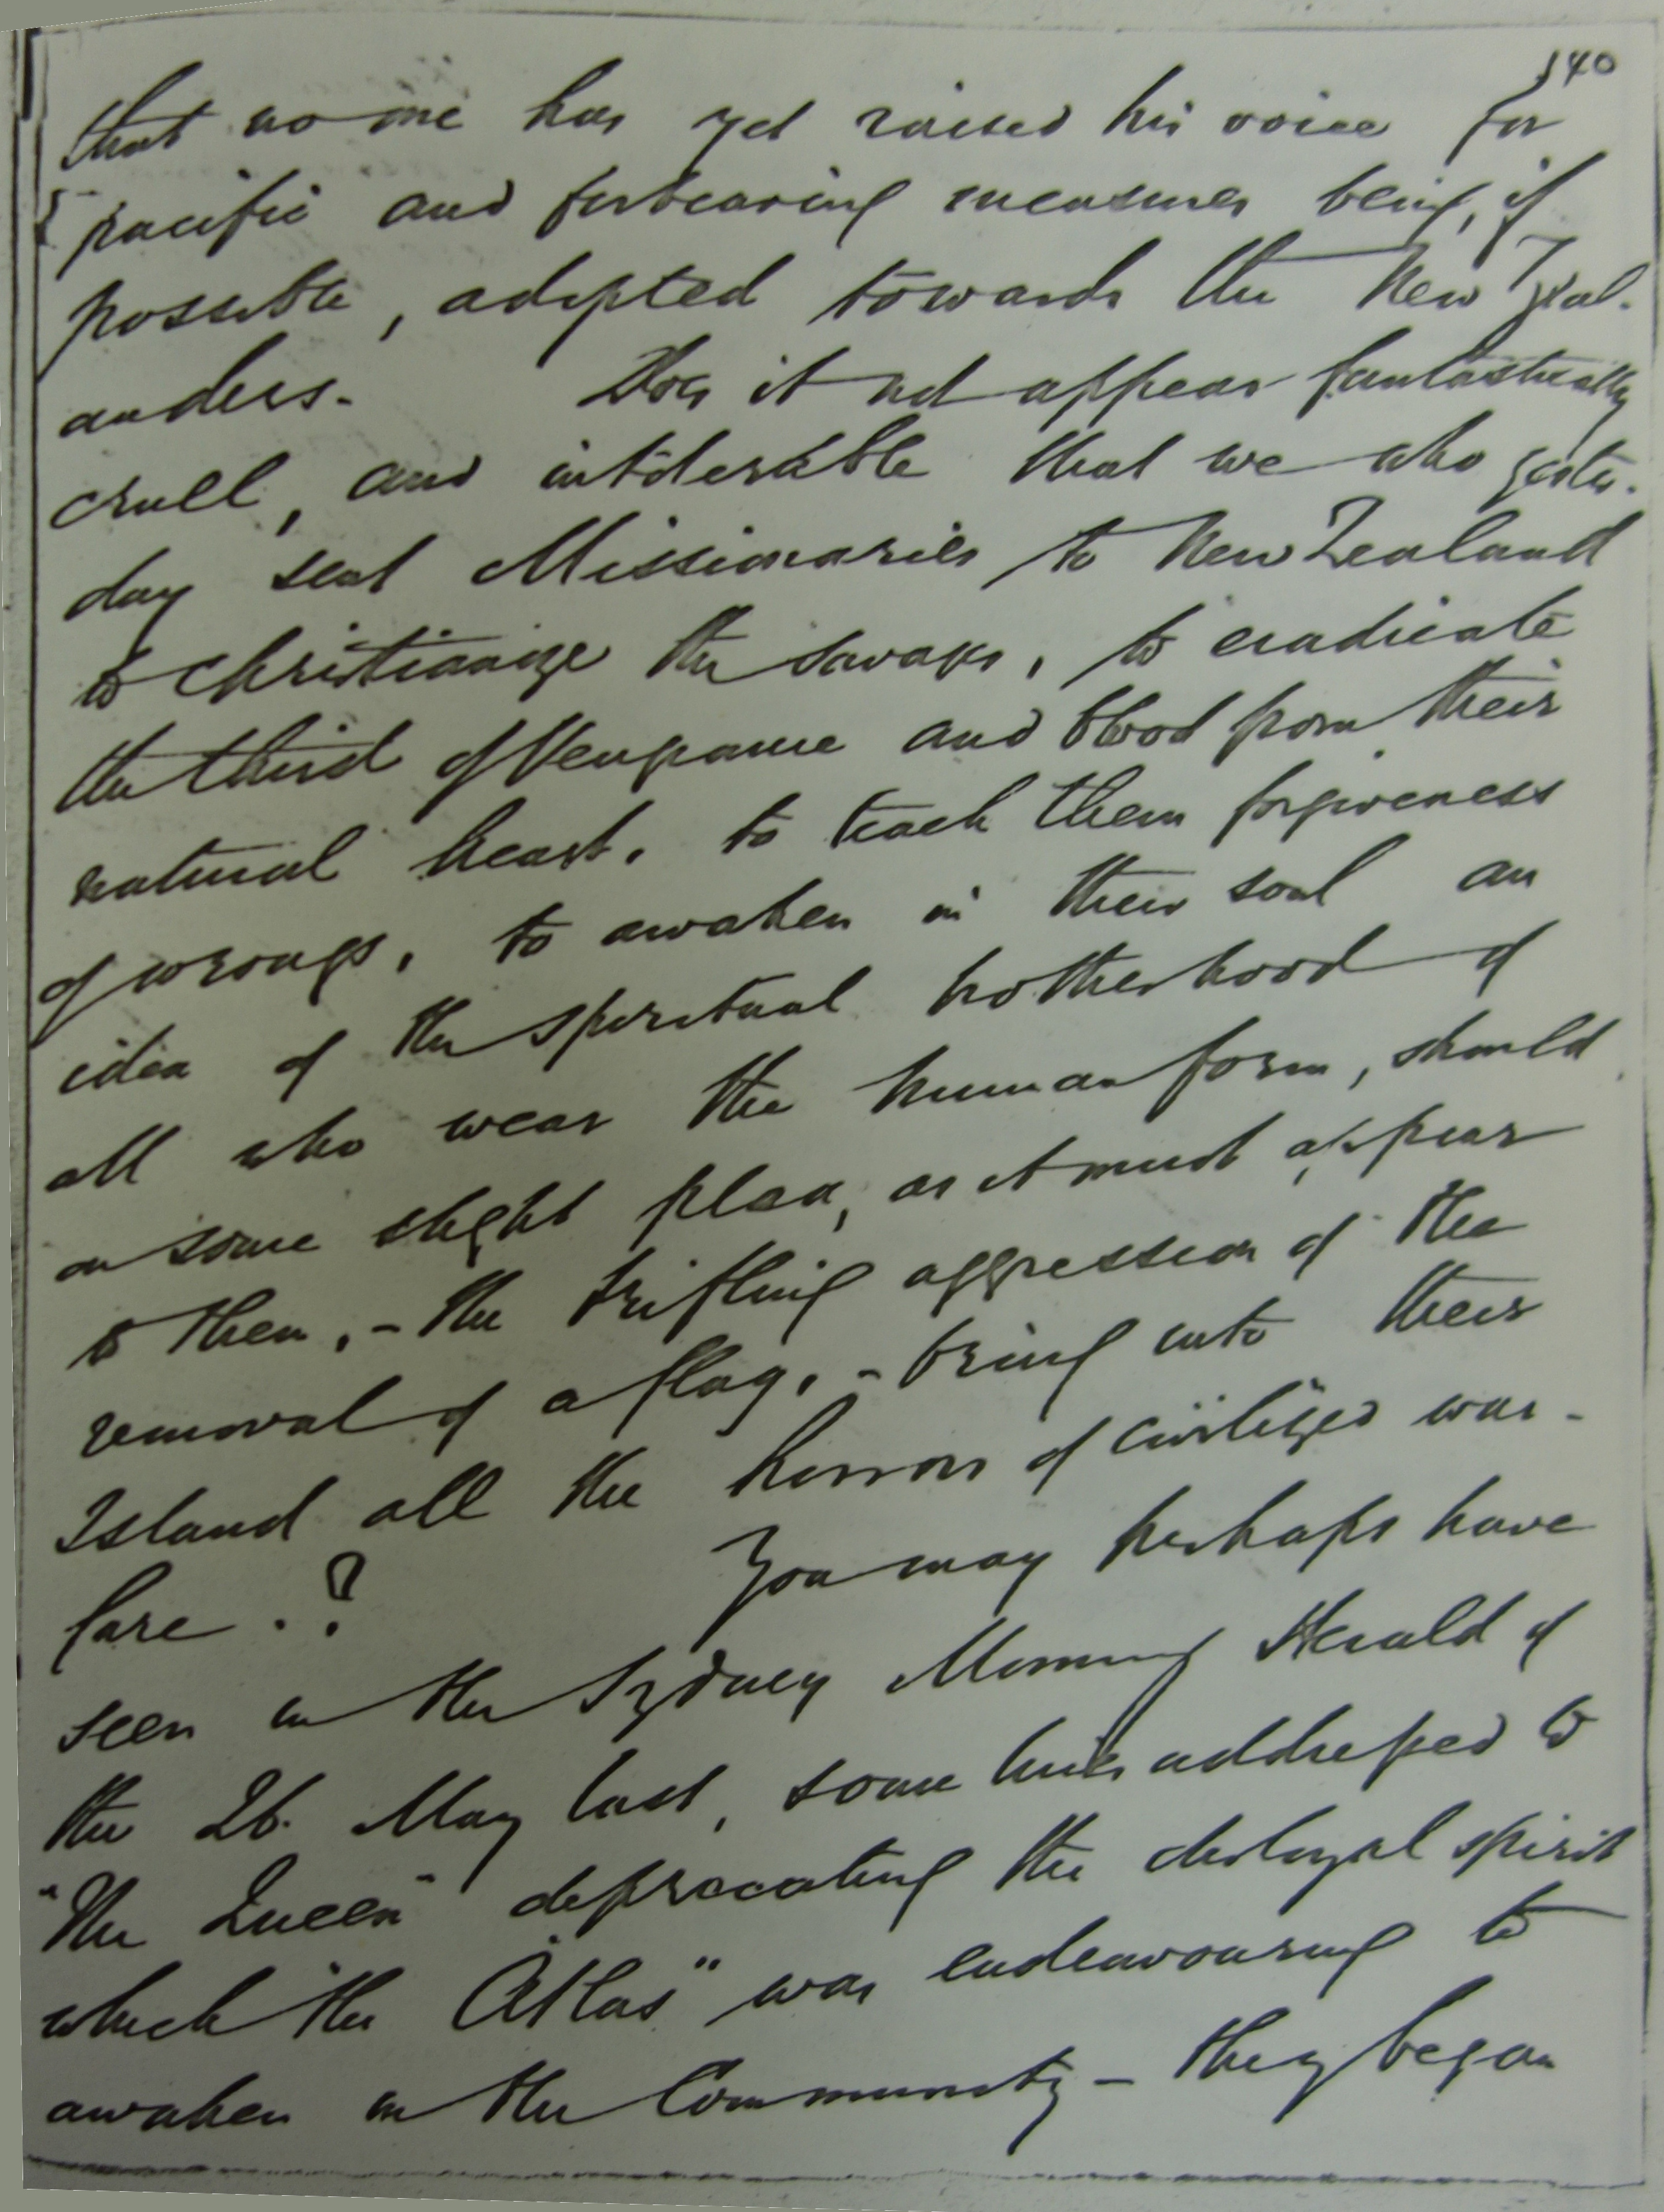 140
that no one has yet raised his voice for
pacific and forbearing measures being, if
possible, adopted towards the New Zeal-
anders. Does it not appear fantastically
cruel, and intolerable that we who yester-
day sent Missionaries to New Zealand
to christianize the savages, to eradicate
the third of Vengeance and blood from their
natural heart, to teach them forgiveness
of wrongs, to awaken in their soul an
idea of the spiritual brotherhood of
all who wear the human form, should
on some slight plea, as it must appear
to them, - the trifling aggression of the
removal of a flag, - bring into their
Island all the horrors of civilized war-
fare.? You may perhaps have
seen in the Sydney Morning Herald of
the 26. May last, some lines addressed to
"The Queen" deprecating the disloyal spirit
which "the Atlas" was endeavouring to
awaken in the Community - they began